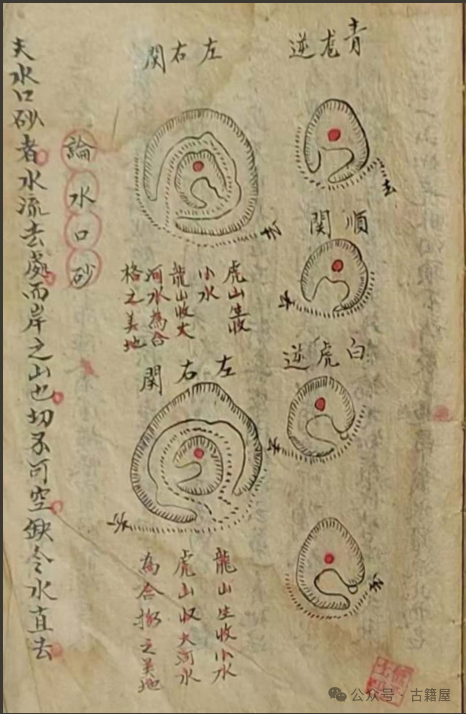 青尨逆
去
順関
去
白虎逆
去
去
左右関
去
虎山生收
小水
龍山收大
河水為合
格之美地
左右関
去
龍山生收小水
虎山收大河水
為合格之美地
論水口砂
夫水口砂者水流去處而岸之山也切不可空缺令水直去
公众号 · 古籍屋